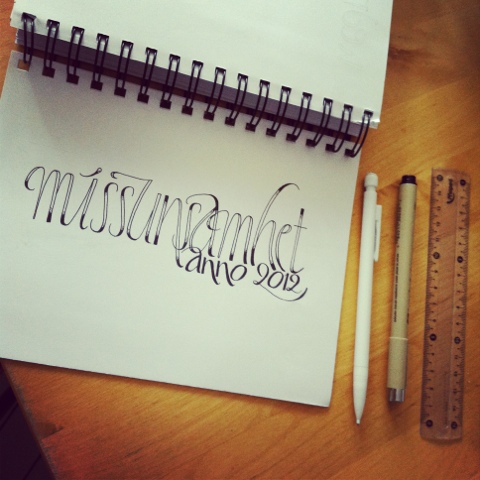 missunsamhet
anno 2012